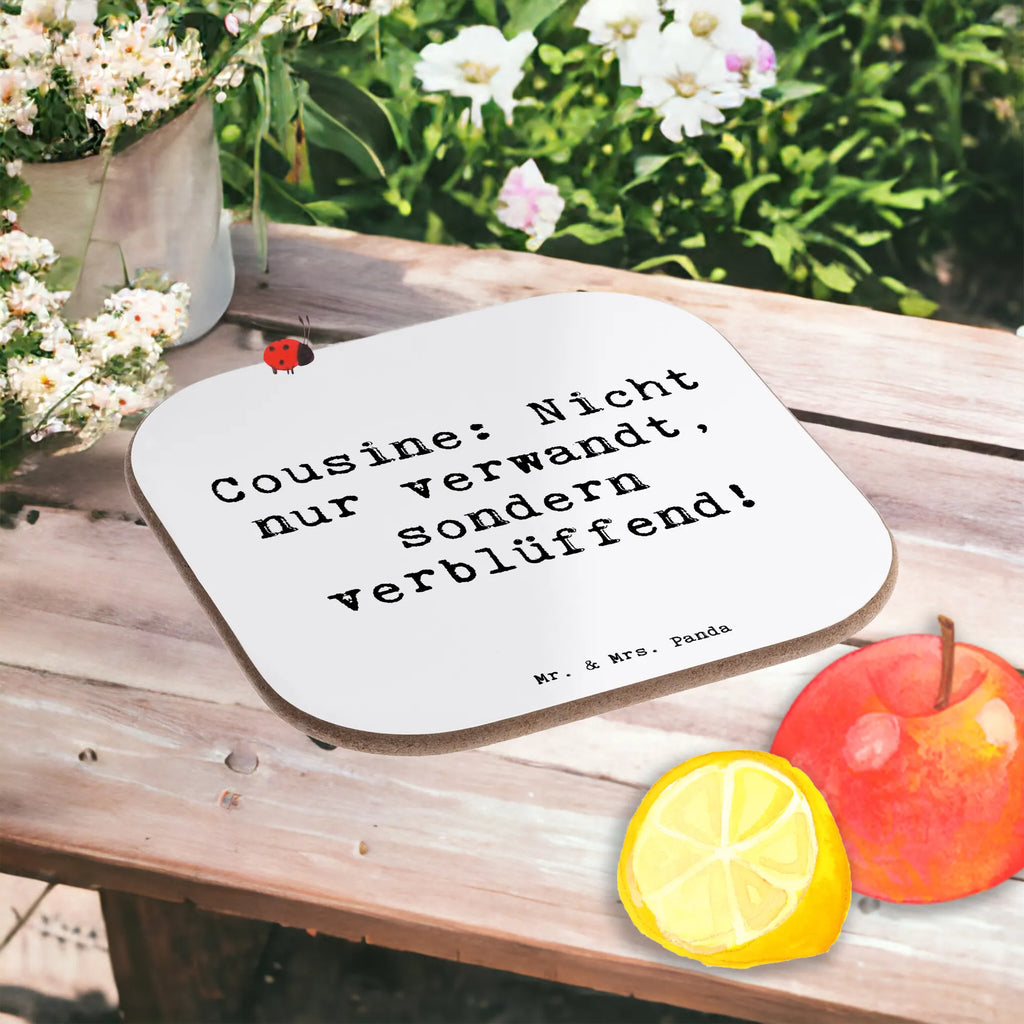 Cousine: Nicht
nur verwandt,
sondern
verblüffend!
Mr. & Mrs. Panda